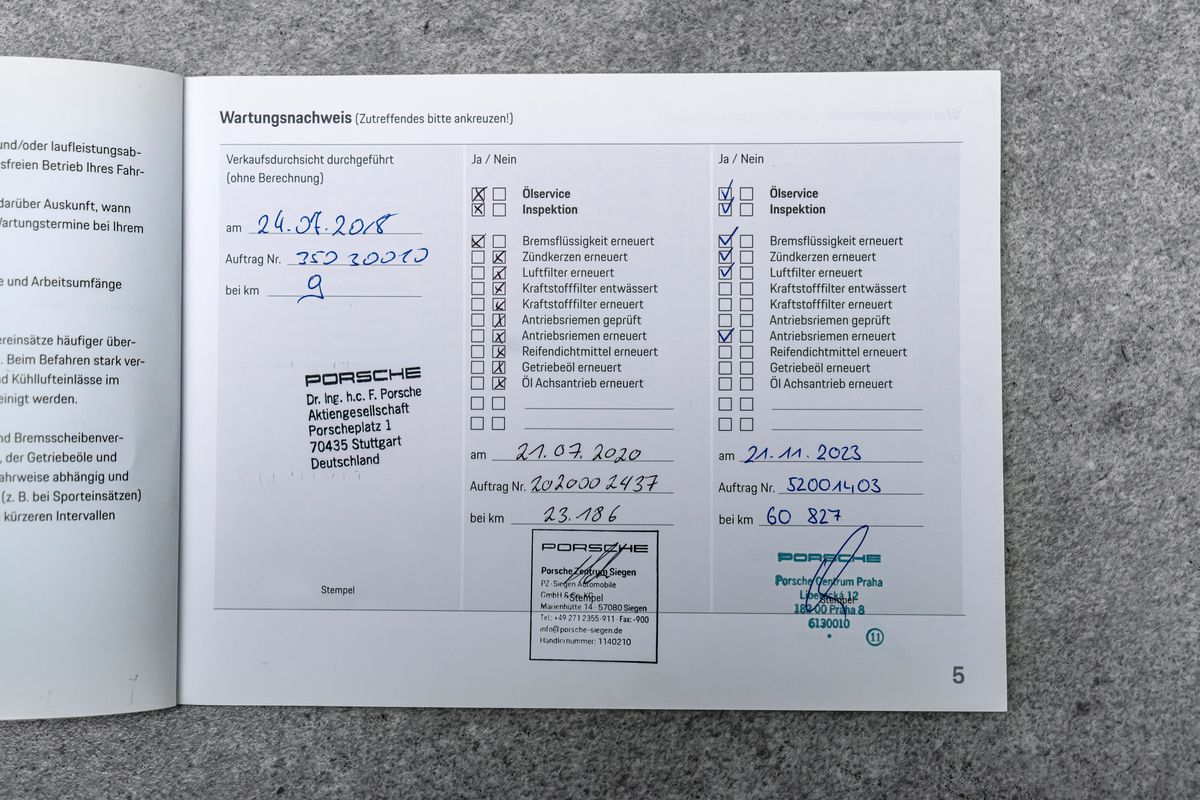 und/oder laufleistungsab-
sfreien Betrieb Ihres Fahr-
darüber Auskunft, wann
Wartungstermine bei Ihrem
e und Arbeitsumfänge
ereinsätze häufiger über-
. Beim Befahren stark ver-
d Kühllufteinlässe im
einigt werden.
nd Bremsscheibenver-
, der Getriebeöle und
ahrweise abhängig und
(z. B. bei Sporteinsätzen)
kürzeren Intervallen
Wartungsnachweis (Zutreffendes bitte ankreuzen!)
Verkaufsdurchsicht durchgeführt
(ohne Berechnung)
am 24.07.2018
Auftrag Nr. 350 30010
bei km 9
PORSCHE
Dr. Ing. h.c. F. Porsche
Aktiengesellschaft
Porscheplatz 1
70435 Stuttgart
Deutschland
Stempel
Ja / Nein
Ölservice
Inspektion
Bremsflüssigkeit erneuert
Zündkerzen erneuert
Luftfilter erneuert
Kraftstofffilter entwässert
Kraftstofffilter erneuert
Antriebsriemen geprüft
Antriebsriemen erneuert
Reifendichtmittel erneuert
Getriebeöl erneuert
Öl Achsantrieb erneuert
am 21.07.2020
Auftrag Nr. 2020002437
bei km 23.186
PORSCHE
Porsche Zentrum Siegen
PZ-Siegen Automobile
GmbH & Co. KG
Stempel
Marienhütte 14 · 57080 Siegen
Tel.: +49 271 2355-911 · Fax: -900
info@porsche-siegen.de
Händlernummer: 1140210
Ja / Nein
Ölservice
Inspektion
Bremsflüssigkeit erneuert
Zündkerzen erneuert
Luftfilter erneuert
Kraftstofffilter entwässert
Kraftstofffilter erneuert
Antriebsriemen geprüft
Antriebsriemen erneuert
Reifendichtmittel erneuert
Getriebeöl erneuert
Öl Achsantrieb erneuert
am 21.11.2023
Auftrag Nr. 52001403
bei km 60 827
PORSCHE
Porsche Centrum Praha
Liberecká 12
Stempel
182 00 Praha 8
6130010
11
5